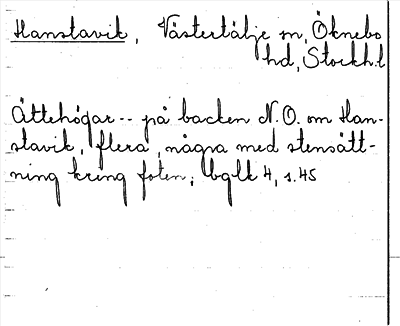 Hanstavik, Västertälje sn, Öknebo
hd, Stockh.l
Ättehögar -- på backen N.O. om Han-
stavik, flera, några med stensätt-
ning kring foten; bglk 4, s.45